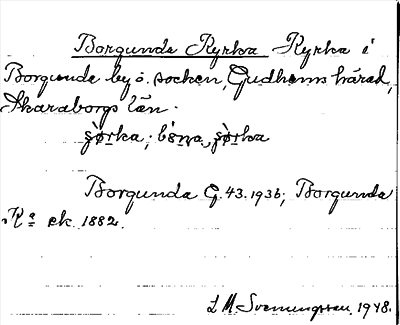 Borgunda Kyrka Kyrka i
Borgunda by o. socken, Gudhems härad,
Skaraborgs län.
Borgunda G. 43. 1936; Borgunda
Ka ek. 1882.
L M. Svenungsson 1948.